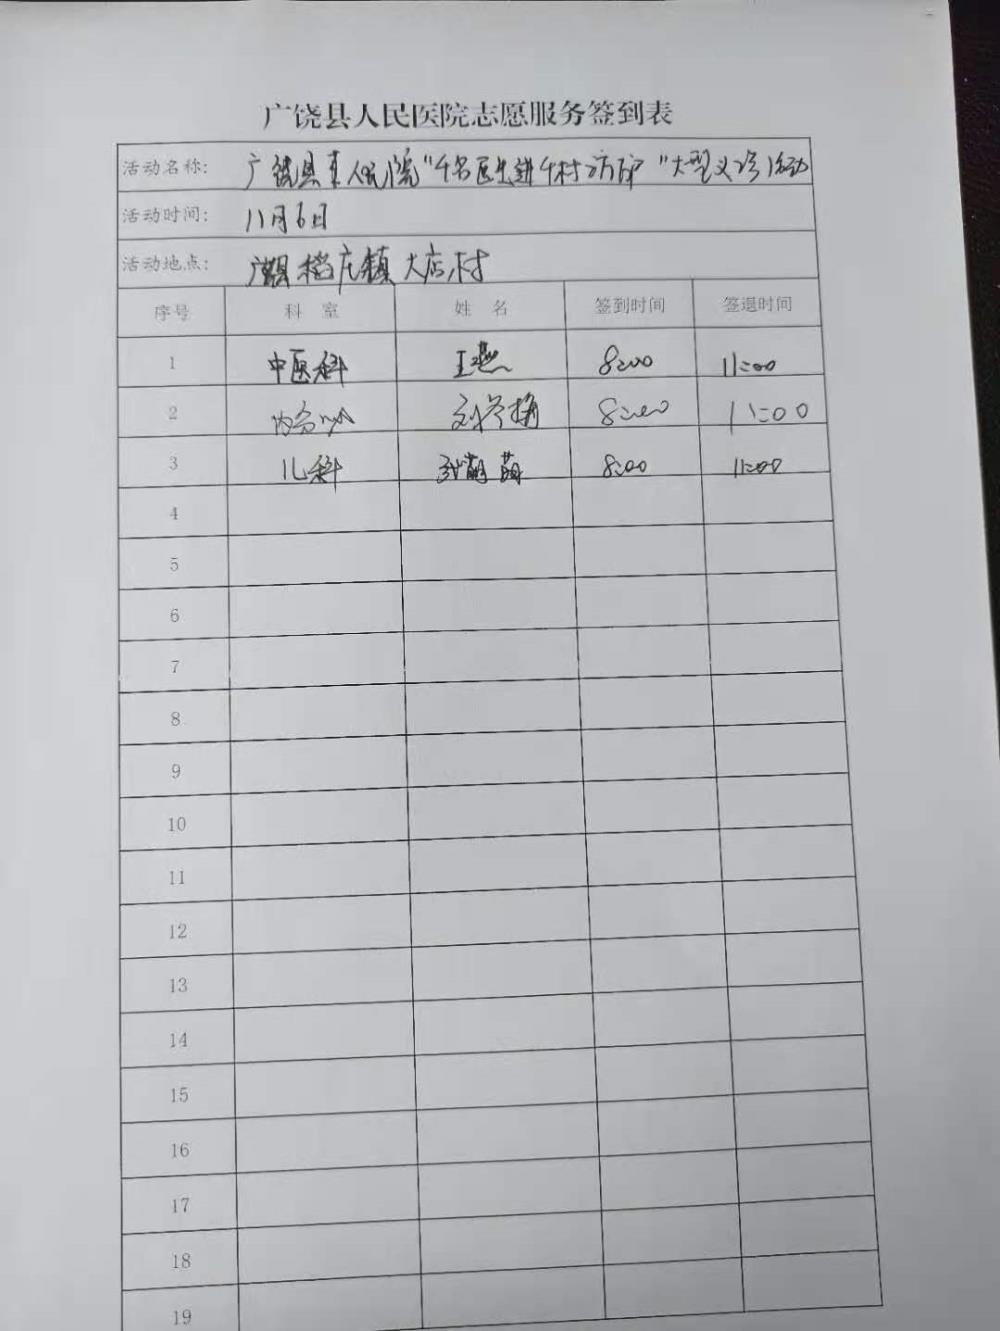 广饶县人民医院志愿服务签到表
活动名称: 广饶县人民医院"千名医生进千村访万户"大型义诊活动
活动时间: 11月6日
活动地点: 广饶县稻庄镇大店村
序号 科室 姓名 签到时间 签退时间
1 中医科 王燕 8:00 11:00
2 刘冬梅 8:00 11:00
3 儿科 张萌萌 8:00 11:00
4
5
6
7
8
9
10
11
12
13
14
15
16
17
18
19